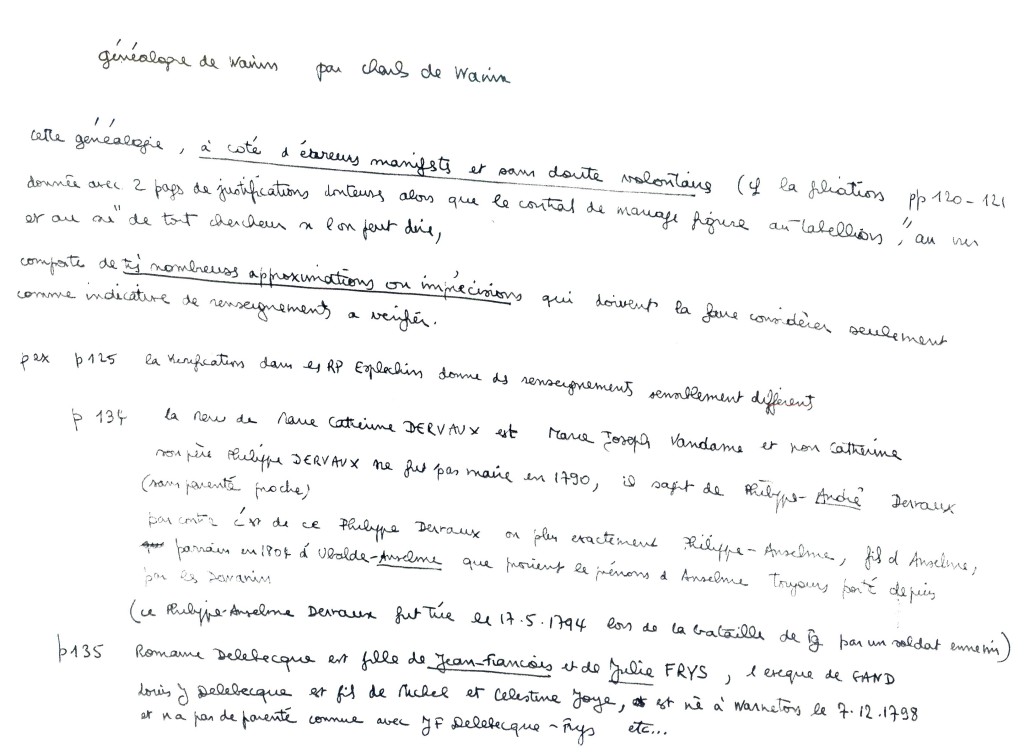 généalogie de Warinn par Charles de Warinn
cette généalogie, à coté d'erreurs manifests et sans doute volontaires (cf la filiation pp 120-121
donnée avec 2 pages de justifications douteuses alors que le contrat de mariage figure au tabellions, "au vu
et au su" de tout chercheur si l'on peut dire,
comporte de très nombreuses approximations ou imprécisions qui doivent la faire considérer seulement
comme indicative de renseignements a verifier.
p ex p 125 la verification dans les RP Esplechin donne des renseignements sensiblement différent
p 134 la mère de Marie Catherine DERVAUX est Marie Joseph Vandame et non Catherine
son père Philippe DERVAUX ne fut pas maire en 1790, il sagit de Philippe-André Dervaux
(sans parenté proche)
par contre c'est de ce Philippe Dervaux ou plus exactement Philippe-Anselme, fils d'Anselme,
parrain en 1807 d'Ubalde-Anselme que provient le prénoms d'Anselme toujours porté depuis
par les
(ce Philippe-Anselme Dervaux fut tué le 17.5.1794 lors de la bataille de Tg par un soldat ennemi)
p 135 Romaine Delebecque est fille de Jean-Francois et de Julie FRYS, l'eveque de GAND
Louis J Delebecque est fils de Michel et Celestine Joye, est né à Warneton le 7.12.1798
et n'a pas de parenté connue avec JF Delebecque-Frys etc...